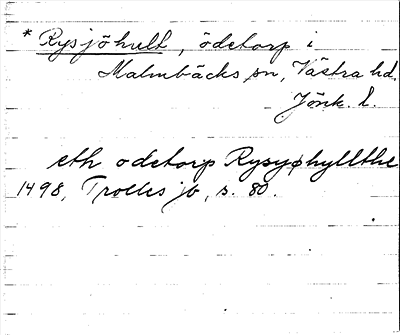 * Rysjöhult, ödetorp i
Malmbäcks sn, Västra hd.
Jönk. l.
eth odetorp Rysyøhyllthe
1498, Trolles jb, s. 80.